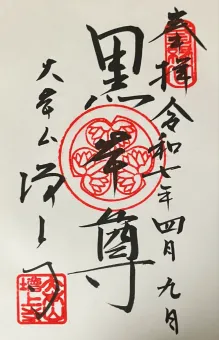 奉拝
令和七年四月九日
黒本尊
大本山
増上寺